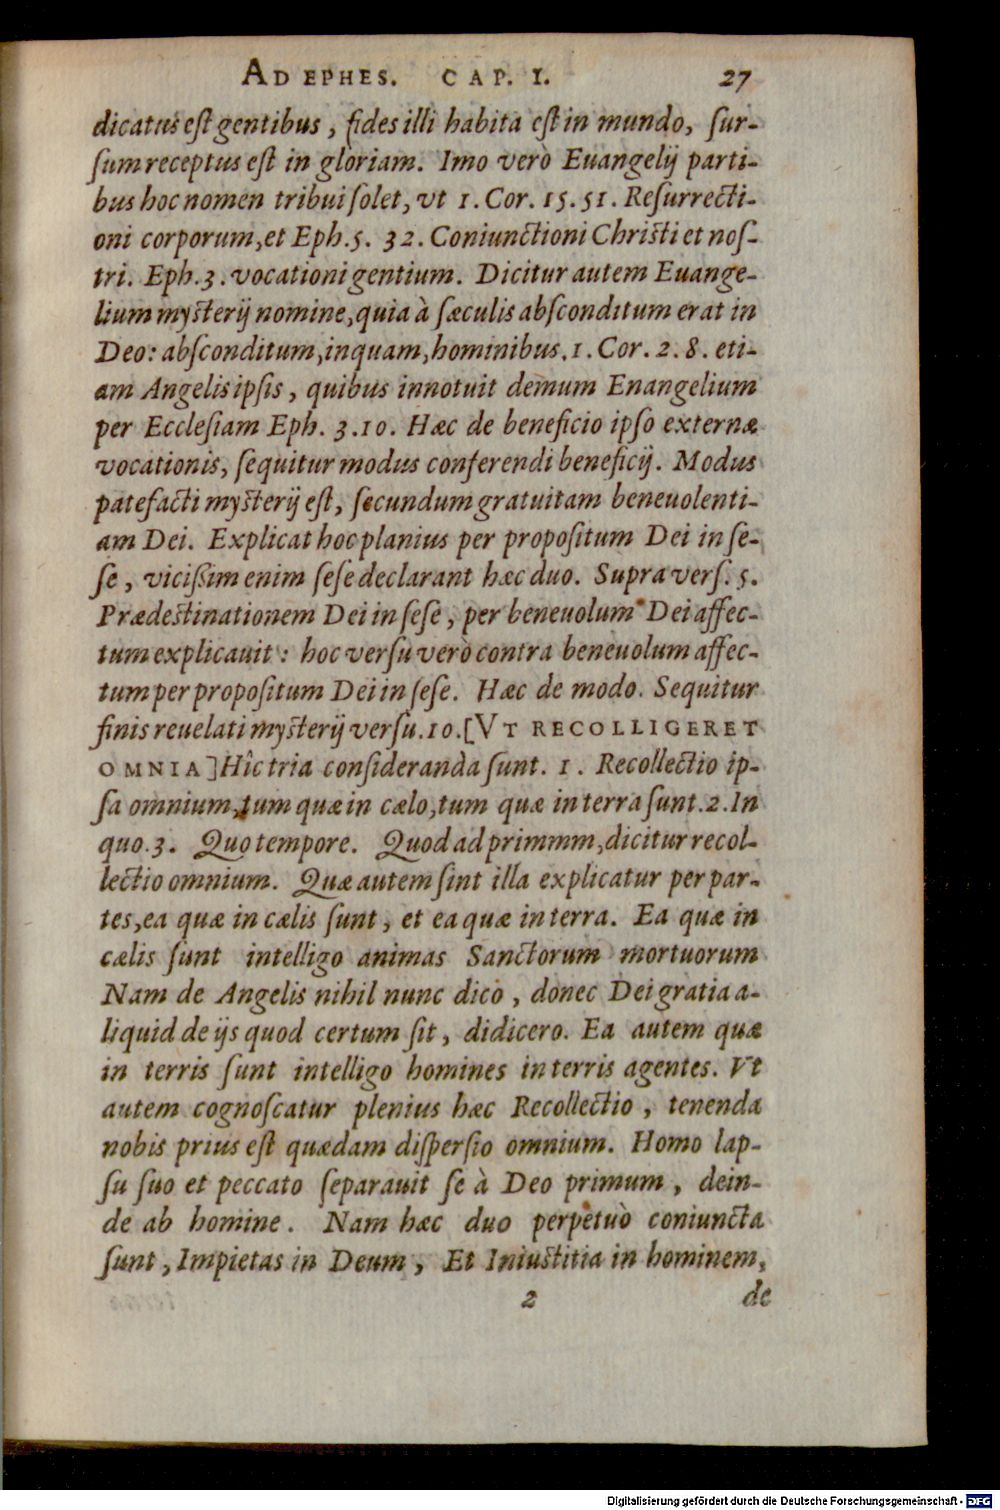 AD EPHES. CAP. I. 27
dicatus eſt gentibus, fides illi habita eſt in mundo, ſur-
ſum receptus eſt in gloriam. Imo verò Euangelij parti-
bus hoc nomen tribui ſolet, vt 1. Cor. 15. 51. Reſurrecti-
oni corporum, et Eph. 5. 32. Coniunctioni Christi et noſ-
tri. Eph. 3. vocationi gentium. Dicitur autem Euange-
lium mysterij nomine, quia à ſæculis abſconditum erat in
Deo: abſconditum, inquam, hominibus. 1. Cor. 2. 8. eti-
am Angelis ipſis, quibus innotuit demum Enangelium
per Eccleſiam Eph. 3. 10. Hæc de beneficio ipſo externæ
vocationis, ſequitur modus conferendi beneficij. Modus
patefacti mysterij eſt, ſecundum gratuitam beneuolenti-
am Dei. Explicat hoc planius per propoſitum Dei in ſe-
ſe, viciſsim enim ſeſe declarant hæc duo. Supra verſ. 5.
Prædestinationem Dei in ſeſe, per beneuolum Dei affec-
tum explicauit: hoc verſu verò contra beneuolum affec-
tum per propoſitum Dei in ſeſe. Hæc de modo. Sequitur
finis reuelati mysterij verſu. 10. [VT RECOLLIGERET
OMNIA] Hîc tria conſideranda ſunt. 1. Recollectio ip-
ſa omnium, tum quæ in cælo, tum quæ in terra ſunt. 2. In
quo. 3. Quo tempore. Quod ad primmm, dicitur recol-
lectio omnium. Quæ autem ſint illa explicatur per par-
tes, ea quæ in cælis ſunt, et ea quæ in terra. Ea quæ in
cælis ſunt intelligo animas Sanctorum mortuorum
Nam de Angelis nihil nunc dico, donec Dei gratia a-
liquid de ijs quod certum ſit, didicero. Ea autem quæ
in terris ſunt intelligo homines in terris agentes. Vt
autem cognoſcatur plenius hæc Recollectio, tenenda
nobis prius eſt quædam diſperſio omnium. Homo lap-
ſu ſuo et peccato ſeparauit ſe à Deo primum, dein-
de ab homine. Nam hæc duo perpetuò coniuncta
ſunt, Impietas in Deum, Et Iniustitia in hominem,
2 de
Digitalisierung gefördert durch die Deutsche Forschungsgemeinschaft - DFG